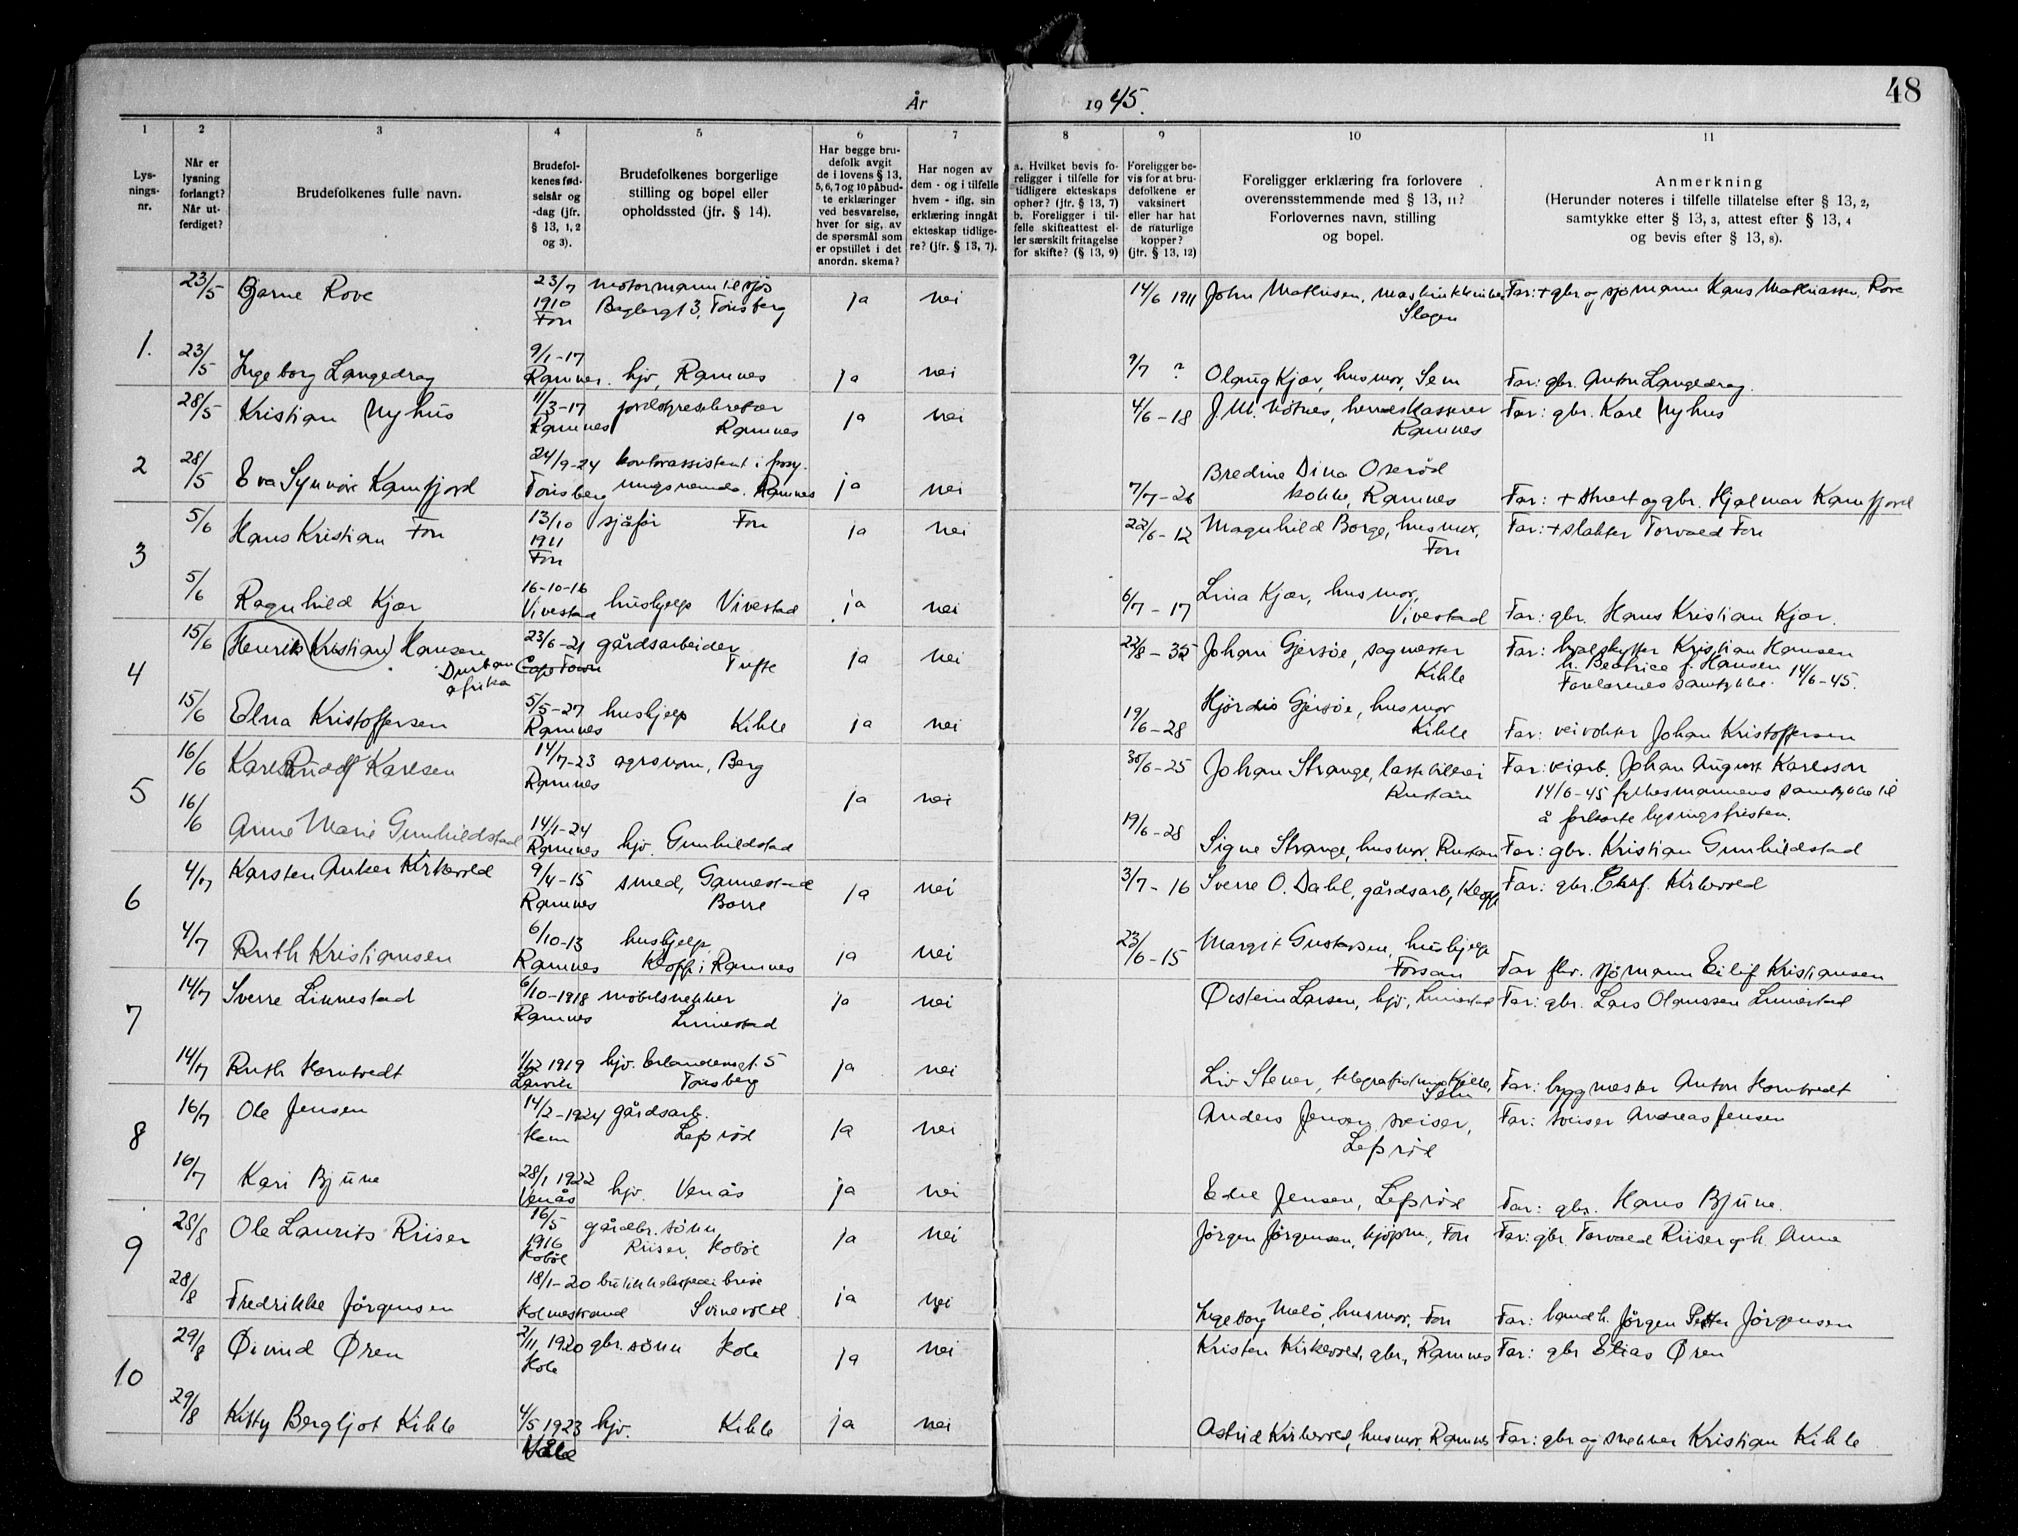 År 1945.
48
1 2 3 4 5 6 7 8 9 10 11
Lys-
nings-
nr.
Når er
lysning
forlangt?
Når ut-
ferdiget?
Brudefolkenes fulle navn.
Brudefol-
kenes fød-
selsår og
-dag (jfr.
§ 13, 1, 2
og 3).
Brudefolkenes borgerlige
stilling og bopel eller
opholdssted (jfr. § 14).
Har begge bru-
defolk avgit
de i lovens § 13,
5, 6, 7 og 10 påbud-
te erklæringer
ved besvarelse,
hver for sig, av
de spørsmål som
er opstillet i det
anordn. skema?
Har nogen av
dem - og i tilfelle
hvem - iflg. sin
erklæring inngåt
ekteskap tidlige-
re? (jfr. § 13, 7).
a. Hvilket bevis fo-
religger i tilfelle for
tidligere ekteskaps
ophør? (jfr. § 13, 7)
b. Foreligger i til-
felle skifteattest el-
ler særskilt fritagelse
for skifte? (§ 13, 9)
Foreligger be-
vis for at bru-
defolkene er
vaksinert
eller har hat
de naturlige
kopper?
(jfr. § 13, 12)
Foreligger erklæring fra forlovere
overensstemmende med § 13, 11?
Forlovernes navn, stilling
og bopel.
Anmerkning
(Herunder noteres i tilfelle tillatelse efter § 13, 2,
samtykke efter § 13, 3, attest efter § 13, 4
og bevis efter § 13, 8).
1. 23/5 Bjarne Rove 23/7 1910 Fon motormann til sjøs ja nei 14/6 1911 John Mathisen, Slagen Far: + gbr og sjømann Hans Mathiassen Rove
23/5 Ingeborg Langedrag 9/1-17 Ramnes. hjv, Ramnes ja nei 9/7 ? Olaug Kjær, husmor, Sem Far: gbr. Anton Langedrag.
2 28/5 Kristian Nyhus 11/3-17 Ramnes Ramnes ja nei 4/6-18 herredskasserer Ramnes Far: gbr. Karl Nyhus
28/5 Eva Synnöve Kamfjord 24/9-24 Tönsberg kontorassistent i forsy-
ningsnemda. Ramnes ja nei 7/7-26 Bredine Dina Oseröd
kokke, Ramnes Far: + gbr. Hjalmar Kamfjord
3 5/6 Hans Kristian Fon 13/10 1911 Fon sjåför Fon ja nei 22/6-12 Magnhild Borge, husmor,
Fon Far: + slakter Torvald Fon
5/6 Ragnhild Kjær 16-10-16 Vivestad hushjelp Vivestad ja nei 6/7-17 Lina Kjær, husmor,
Vivestad Far: gbr. Hans Kristian Kjær.
4 15/6 Henrik (Kristian) Hansen 23/6-21 Cape Town Durban
Afrika gårdsarbeider
Tufte ja nei 22/8-35 Johan Gjersøe, sagmester
Kihle Far: hvalskytter Kristian Hansen
h. Beatrice f. Hansen
Foreldrenes samtykke 14/6-45.
15/6 Elna Kristoffersen 5/5-27 Ramnes hushjelp Kihle ja nei 19/6-28 Hjørdis Gjersøe, husmor
Kihle Far: veivokter Johan Kristoffersen
5 16/6 Karl Rudolf Karlsen 14/7-23 Ramnes agronom, Berg ja nei 30/6-25 Johan Strange, lastebileier
Rustan Far: veiarb. Johan August Karlsson
14/6-45 fylkesmannens samtykke til
å forkorte lysingsfristen.
16/6 Anne Marie Gunhildstad 14/1-24 Ramnes hjv. Gunhildstad 19/6-28 Signe Strange, husmor, Rustan Far: gbr. Kristian Gunhildstad
6 4/7 Karsten Anker Kirkevold 9/4-15 Ramnes smed, Gannestad
Borre ja nei 3/7-16 Sverre O. Dahl, gårdsarb, Klopp Far: gbr. Kirkevold
4/7 Ruth Kristiansen 6/10-13 Ramnes hushjelp
Klopp i Ramnes ja nei 23/6-15 Margit Gustavsen, hushjelp
Forsan Far fhv. sjömann Eilif Kristiansen
7 14/7 Sverre Linnestad 6/10-1918 Ramnes möbelsnekker
Linnestad ja nei Øistein Larsen, hjv, Linnestad Far: gbr. Lars Olaussen Linnestad
14/7 Ruth Horntvedt 1/12 1919 Larvik hjv. Erlandsensgt. 5
Tönsberg ja nei Liv Stener, Sem Far: byggmester Anton Horntvedt
8 16/7 Ole Jensen 14/2-1924 Hem gårdsarb.
Lefsröd ja nei Anders Jensen sveiser,
Lefsröd Far: sveiser Andreas Jensen
16/7 Kari Bjune 28/1 1922 Venås hjv. Venås ja nei Edel Jensen, Lefsröd Far: gbr. Hans Bjune.
9 28/8 Ole Laurits Riiser 16/5 1916 Hobøl gårdbr. sönn
Riiser, Hobøl ja nei Jörgen Jörgensen, kjöpm, Fon Far: gbr. Torvald Riiser og h. Anna
28/8 Fredrikke Jörgensen 18/1-20 Holmestrand butikkekspeditrise
Svinevold ja nei Ingeborg Melö, husmor, Fon Far: landh. Jörgen Petter Jörgensen
10 29/8 Øivind Ören 2/11 1920 Hole gbr. sönn Hole ja nei Kristen Kirkevold, gbr, Ramnes Far: gbr Elias Ören
29/8 Kitty Bergljot Kihle 4/5 1923 Våle hjv. Kihle ja nei Astrid Kirkevold, husmor, Ramnes Far: gbr og snekker Kristian Kihle